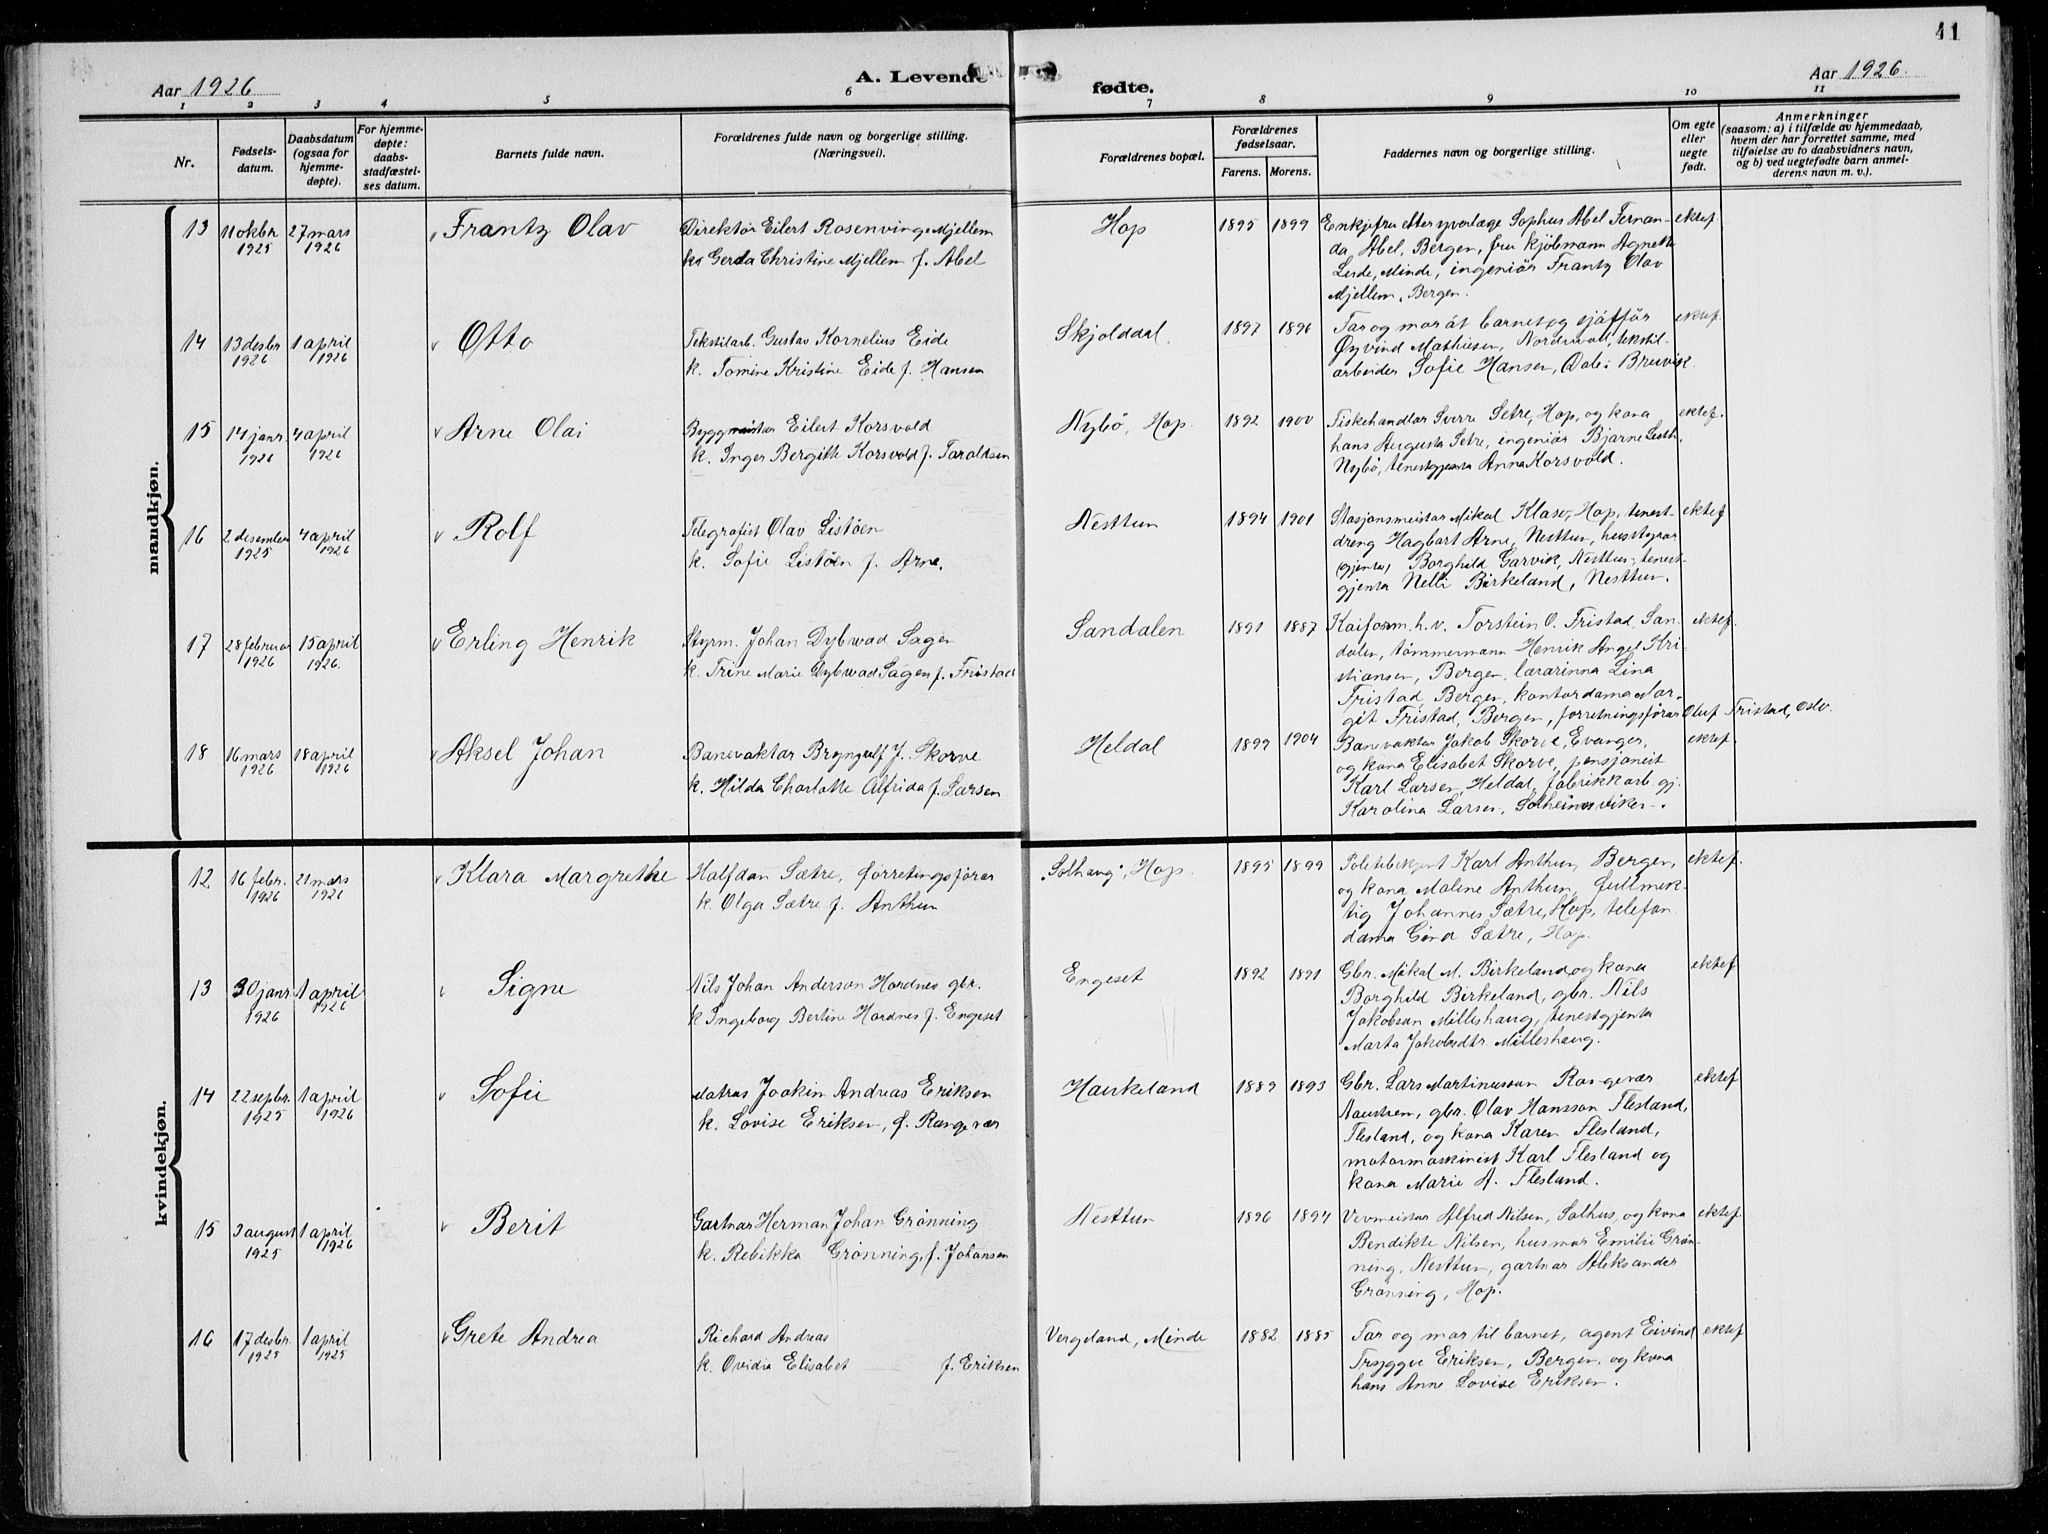 41
Aar 1926
A. Levende fødte.
Aar 1926.
1 2 3 4 5 6 7 8 9 10 11
Nr.
Fødsels-
datum.
Daabsdatum
(ogsaa for
hjemme-
døpte).
For hjemme-
døpte:
daabs-
stadfæstel-
ses datum.
Barnets fulde navn.
Forældrenes fulde navn og borgerlige stilling.
(Næringsvei).
Forældrenes bopæl.
Forældrenes
fødselsaar.
Farens. Morens.
Faddernes navn og borgerlige stilling.
Om egte
eller
uegte
født.
Anmerkninger
(saasom: a) i tilfælde av hjemmedaab,
hvem der har forrettet samme, med
tilføielse av to daabsvidners navn,
og b) ved uegtefødte barn anmel-
derens navn m. v.).
mandkjøn.
13 11 oktbr 1925 27 mars 1926 Frantz Olav
Direktør Eilert Rosenvinge Mjellem
k. Gerda Christine Mjellem f. Abel
Hop 1895 1899
Enkjefru etter yverlæge Sophus Abel Fernan-
da Abel, Bergen, fru kjøbmann Agnete
Lerde, Minde, ingeniør Frantz Olav
Mjellem, Bergen.
ektef
14 13 desbr 1926 1 april 1926 Otto
Tekstilarb. Gustav Kornelius Eide
k. Tomine Kristine Eide f. Hansen
Skjolddal. 1897 1896
Far og mor åt barnet og sjåffør
Øyvind Mathiesen, Nordvoll, tekstil-
arbeider Sofie Hansen, Dale i Bruvik.
ektef.
15 14 janr 1926 4 april 1926 Arne Olai
Byggmeistar Eilert Korsvold
k. Inger Bergitte Korsvold f. Taraldsen
Nybø, Hop. 1892 1900
Fiskehandlar Sverre Setre, Hop, og kona
hans Augusta Setre, ingeniør Bjarne
Nybø, tenestgjenta Anna Korsvold.
ektef.
16 2 desember 1925 4 april 1926 Rolf
Telegrafist Olav Listøen
k. Sofie Listøen f. Arne.
Nesttun 1894 1901
Stasjonsmeistar Mikal Hop, tenest-
dreng Hagbart Arne, Nesttun, husstyrar
(gjenta) Borghild Garvik, Nesttun, tenest-
gjenta Nelli Birkeland, Nesttun.
ektef
17 28 februar 1926 15 april 1926. Erling Henrik
Styrm. Johan Dybwad Sagen
k. Trine Marie Dybwad Sagen f. Fristad
Sandalen 1891 1887
Kaiform. h. v. Torstein O. Fristad, San-
dalen, tømmermann Henrik Angel Kri-
stiansen, Bergen, lærarinna Lina
Fristad, Bergen, kontordama Mar-
git Fristad, Bergen, forretningsførar Oluf Fristad, Oslo.
ektef.
18 16 mars 1926 18 april 1926 Aksel Johan
Banevaktar Bryngulf J. Skorve
k. Hilda Charlotte Alfrida f. Larsen
Heldal 1899 1904
Banevaktar Jakob Skorve, Evanger,
og kona Elisabet Skorve, pensjoneit
Karl Larsen, Heldal, fabrikkarb. gj.
Karolina Larsen, Solheimsviken.
ektef.
kvindekjøn.
12 16 febr. 1926 21 mars 1926 Klara Margrethe
Halfdan Sætre, forretingsførar
k. Olga Sætre f. Anthun
"Solhaug", Hop. 1895 1899
Politibetjent Karl Anthun, Bergen,
og kona Maline Anthun, fullmek-
tig Johannes Sætre, Hop, telefon
dama Sætre, Hop.
ektef.
13 30 janr 1926 1 april 1926 Signe
Nils Johan Anderson Hordnes gbr.
k Ingeborg Bertine Hordnes f. Engeset
Engeset 1892 1891
Gbr. Mikal M. Birkeland og kona
Borghild Birkeland, gbr. Nils
Jakobson Milleshaug, tenestgjenta
Marta Jakobsdtr. Milleshaug.
ektef
14 22 sepbr. 1925 1 april 1926 Sofie
Matros Joakim Andreas Eriksen
k. Lovise Eriksen, f. Rangevær
Haukeland 1889 1893
Gbr. Lars Martinusson Rangevær
Austren, gbr. Olav Hansson Flesland,
Flesland, og kona Karen Flesland,
motormaskinist Karl Flesland og
kona Marie A. Flesland.
ektef
15 3 august 1925 1 april 1926 Berit
Gartnar Herman Johan Grønning
k. Rebikka Grønning, f. Johansen
Nesttun 1896 1894
Vevmeistar Alfred Nilsen, Salhus, og kona
Bendikte Nilsen, husmor Emilie Grøn-
ning, Nesttun, gartnar Aleksander
Grønning, Hop.
ektef.
16 17 desbr. 1925 1 april 1925 Grete Andrea
Richard Andreas
k. Ovidia Elisabet f. Eriksen
Vergeland, Minde 1882 1885
Far og mor til barnet, agent Eivind
Tryggve Eriksen, Bergen, og kona
hans Anne Lovise Eriksen.
ektef